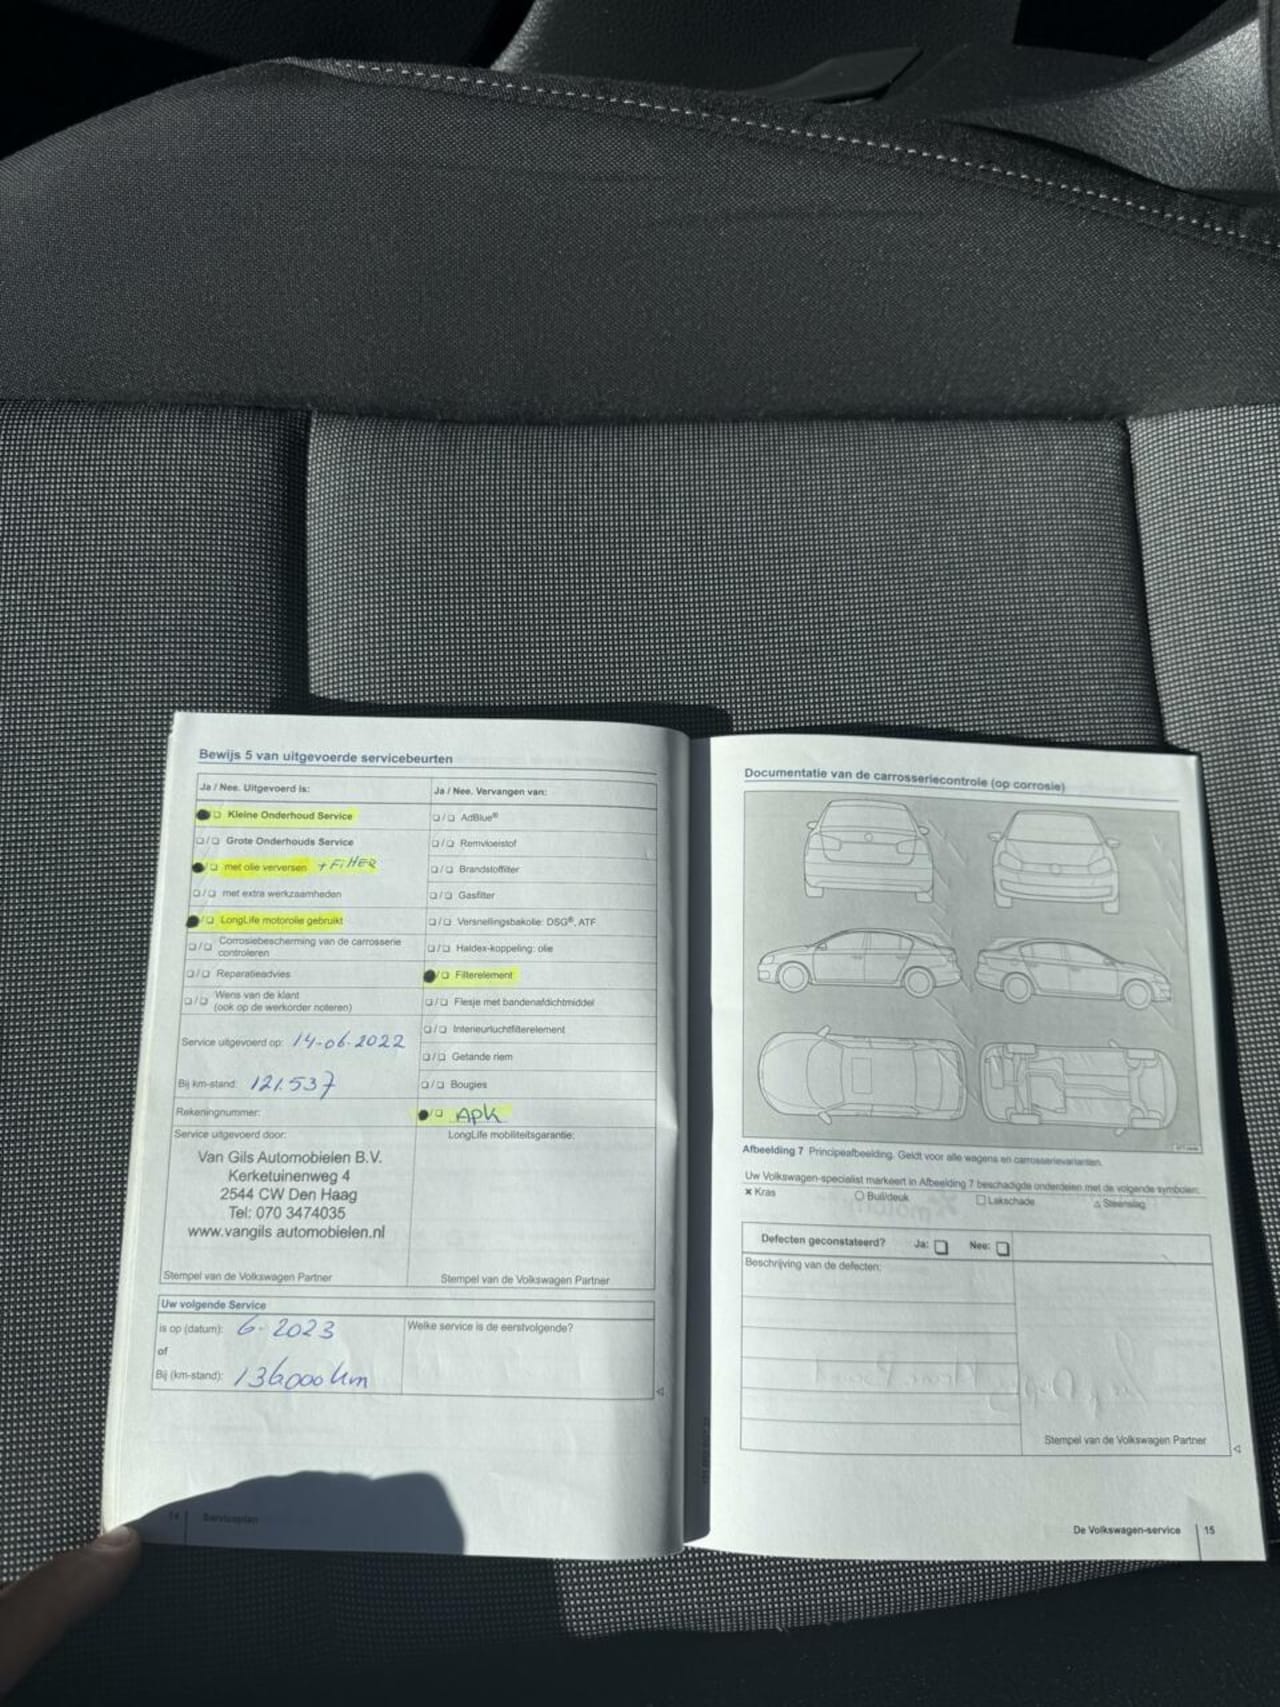 Bewijs 5 van uitgevoerde servicebeurten
Ja / Nee. Uitgevoerd is:
Kleine Onderhoud Service
Grote Onderhouds Service
met olie verversen + FilTER
met extra werkzaamheden
LongLife motorolie gebruikt
Corrosiebescherming van de carrosserie
controleren
Reparatieadvies
Wens van de klant
(ook op de werkorder noteren)
Service uitgevoerd op: 14-06-2022
Bij km-stand: 121.537
Rekeningnummer:
Ja / Nee. Vervangen van:
AdBlue®
Remvloeistof
Brandstoffilter
Gasfilter
Versnellingsbakolie: DSG®, ATF
Haldex-koppeling: olie
Filterelement
Flesje met bandenafdichtmiddel
Interieurluchtfilterelement
Getande riem
Bougies
APK
Service uitgevoerd door:
Van Gils Automobielen B.V.
Kerketuinenweg 4
2544 CW Den Haag
Tel: 070 3474035
www.vangils automobielen.nl
Stempel van de Volkswagen Partner
LongLife mobiliteitsgarantie:
Stempel van de Volkswagen Partner
Uw volgende Service
is op (datum): 6-2023
of
Bij (km-stand): 136000 km
Welke service is de eerstvolgende?
14 Serviceplan
Documentatie van de carrosseriecontrole (op corrosie)
Afbeelding 7 Principeafbeelding. Geldt voor alle wagens en carrosserievarianten.
Uw Volkswagen-specialist markeert in Afbeelding 7 beschadigde onderdelen met de volgende symbolen:
× Kras
○ Buil/deuk
□ Lakschade
△ Steenslag
Defecten geconstateerd? Ja: Nee:
Beschrijving van de defecten:
Stempel van de Volkswagen Partner
De Volkswagen-service 15